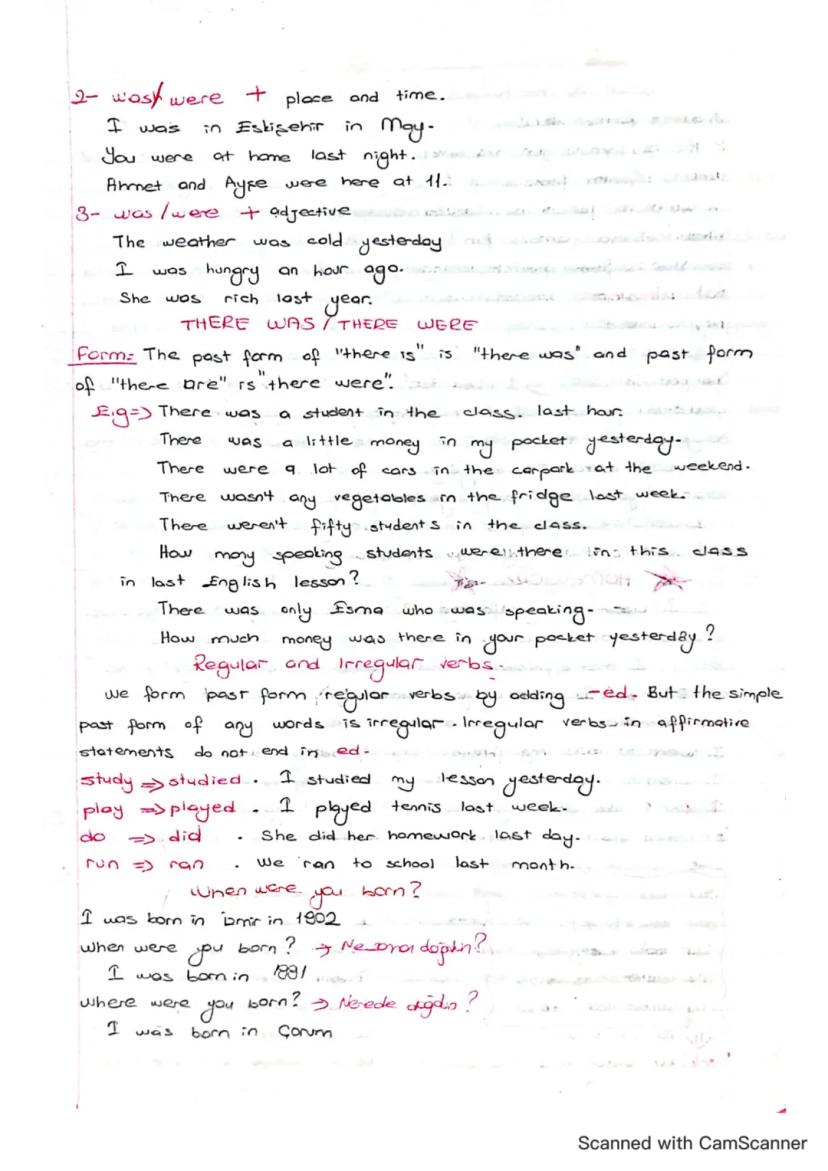 2- was/ were + place and time.
I was in Eskişehir in May.
You were at home last night.
Ahmet and Ayşe were here at 11.
3- was / were + adjective
The weather was cold yesterday
I was hungry an hour ago.
She was rich last year.
THERE WAS / THERE WERE
Form: The past form of "there is" is "there was" and past form
of "there are" is "there were".
E.g=> There was a student in the class. last hour.
There was a little money in my pocket yesterday.
There were a lot of cars in the carpark at the weekend.
There wasn't any vegetables in the fridge last week.
There weren't fifty students in the class.
How many speaking students were there in this class
in last English lesson?
There was only Esma who was speaking.
How much money was there in your pocket yesterday?
Regular and Irregular verbs.
We form past form regular verbs by adding -ed. But the simple
past form of any words is irregular. Irregular verbs in affirmative
statements do not end in ed.
study => studied. I studied my lesson yesterday.
play => played. I played tennis last week.
do => did. She did her homework last day.
run => ran. We ran to school last month.
When were you born?
I was born in İzmir in 1902
when were you born? → Ne
I was born in 1881
where were you born? → Nerede doğdun?
I was born in Çorum
Scanned with CamScanner